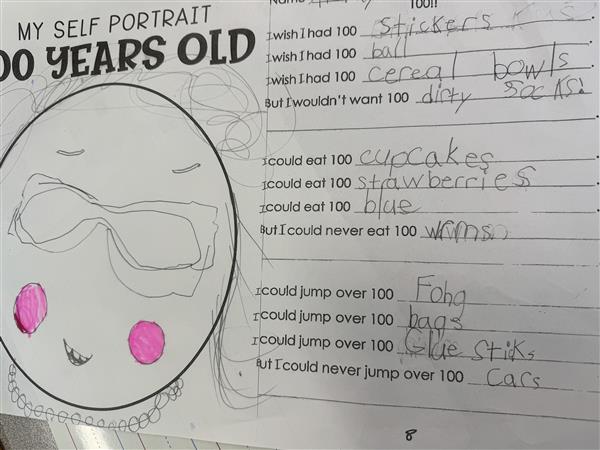 MY SELF PORTRAIT
00 YEARS OLD
Name
100!!
I wish I had 100 stickers
I wish I had 100 ball
I wish I had 100 cereal bowls.
But I wouldn't want 100 dirty socks!
I could eat 100 cupcakes.
I could eat 100 strawberries.
I could eat 100 blue.
But I could never eat 100 wrms.
I could jump over 100 Fohg.
I could jump over 100 bags.
I could jump over 100 Glue stiks.
But I could never jump over 100 cars.
8